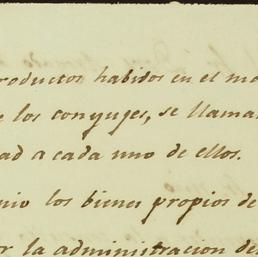 roductos habidos en el ma
e los conyuges, se llama
ad a cada uno de ellos.
nio los bienes propios de
or la administracion de